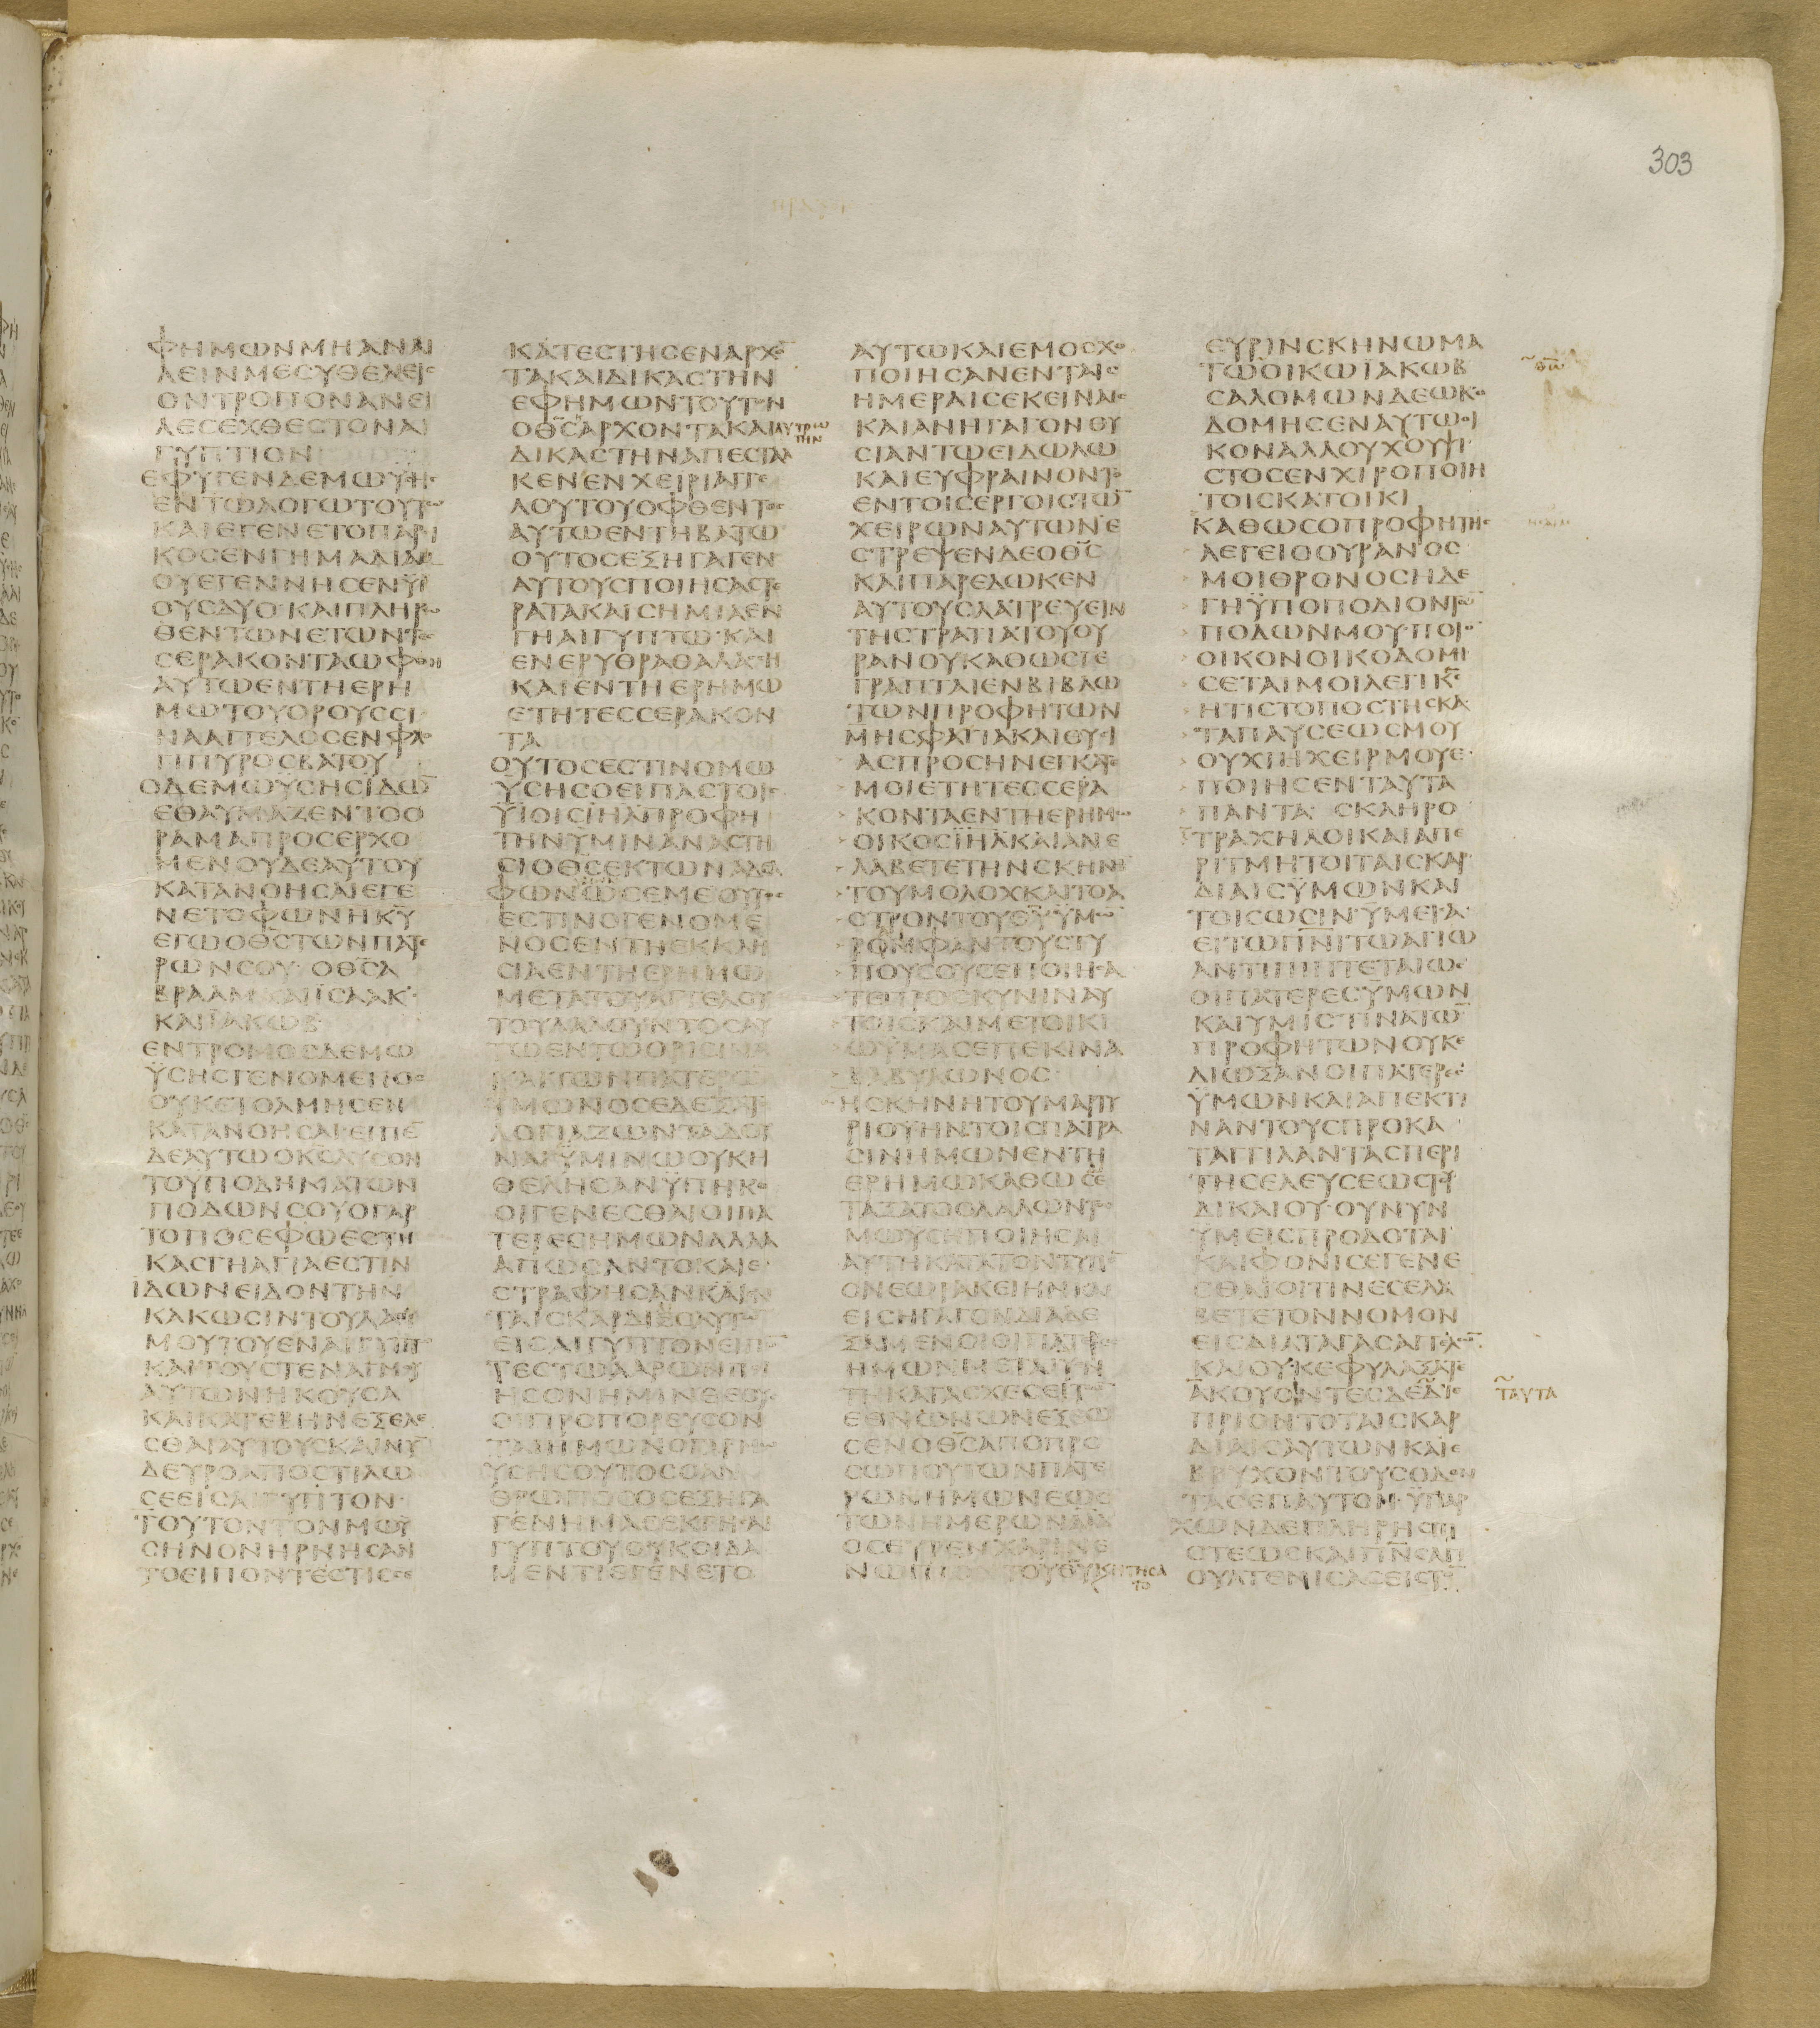 303
ΠΡΑΞΕΙΣ
ΦΗΜΩΝΜΗΑΝΑΙ
ΛΕΙΝΜΕΣΥΘΕΛΕΙΣ
ΟΝΤΡΟΠΟΝΑΝΕΙ
ΛΕΣΕΧΘΕΣΤΟΝΑΙ
ΓΥΠΤΙΟΝ
ΕΦΥΓΕΝΔΕΜΩΥΣΗΣ
ΕΝΤΩΛΟΓΩΤΟΥΤΩ
ΚΑΙΕΓΕΝΕΤΟΠΑΡΟΙ
ΚΟΣΕΝΓΗΜΑΔΙΑΜ
ΟΥΕΓΕΝΝΗΣΕΝΫΙ
ΟΥΣΔΥΟ·ΚΑΙΠΛΗΡΩ
ΘΕΝΤΩΝΕΤΩΝΤΕΣ
ΣΕΡΑΚΟΝΤΑΩΦΘΗ
ΑΥΤΩΕΝΤΗΕΡΗ
ΜΩΤΟΥΟΡΟΥΣΣΙ
ΝΑΑΓΓΕΛΟΣΕΝΦΛΟ
ΓΙΠΥΡΟΣΒΑΤΟΥ
ΟΔΕΜΩΫΣΗΣΪΔΩ̅
ΕΘΑΥΜΑΖΕΝΤΟΟ
ΡΑΜΑΠΡΟΣΕΡΧΟ
ΜΕΝΟΥΔΕΑΥΤΟΥ
ΚΑΤΑΝΟΗΣΑΙΕΓΕ
ΝΕΤΟΦΩΝΗΚ̅Υ̅
ΕΓΩΟΘ̅Σ̅ΤΩΝΠΑΤΕ
ΡΩΝΣΟΥ·ΟΘ̅Σ̅Α
ΒΡΑΑΜΚΑΙΪΣΑΑΚ·
ΚΑΙΪΑΚΩΒ
ΕΝΤΡΟΜΟΣΔΕΜΩ
ΫΣΗΣΓΕΝΟΜΕΝΟΣ
ΟΥΚΕΤΟΛΜΗΣΕΝ
ΚΑΤΑΝΟΗΣΑΙ·ΕΙΠΕ̅
ΔΕΑΥΤΩΟΚ̅Σ̅ΛΥΣΟΝ
ΤΟΥΠΟΔΗΜΑΤΩΝ
ΠΟΔΩΝΣΟΥΟΓΑΡ
ΤΟΠΟΣΕΦΩΕΣΤΗ
ΚΑΣΓΗΑΓΙΑΕΣΤΙΝ
ΪΔΩΝΕΙΔΟΝΤΗΝ
ΚΑΚΩΣΙΝΤΟΥΛΑΟΥ
ΜΟΥΤΟΥΕΝΑΙΓΥΠΤΩ
ΚΑΙΤΟΥΣΤΕΝΑΓΜΟΥ
ΑΥΤΩΝΗΚΟΥΣΑ
ΚΑΙΚΑΤΕΒΗΝΕΞΕΛΕ
ΣΘΑΙΑΥΤΟΥΣΚΑΙΝΥ̅
ΔΕΥΡΟΑΠΟΣΤΙΛΩ
ΣΕΕΙΣΑΙΓΥΠΤΟΝ·
ΤΟΥΤΟΝΤΟΝΜΩΫ
ΣΗΝΟΝΗΡΝΗΣΑΝ
ΤΟΕΙΠΟΝΤΕΣΤΙΣΣΕ
ΚΑΤΕΣΤΗΣΕΝΑΡΧΟ̅
ΤΑΚΑΙΔΙΚΑΣΤΗΝ
ΕΦΗΜΩΝΤΟΥΤΟΝ
ΟΘ̅Σ̅ΑΡΧΟΝΤΑΚΑΙ
ΛΥΤΡΩ
ΤΗΝ
ΔΙΚΑΣΤΗΝΑΠΕΣΤΑΛ
ΚΕΝΕΝΧΕΙΡΙΑΓΓΕ
ΛΟΥΤΟΥΟΦΘΕΝΤΟΣ
ΑΥΤΩΕΝΤΗΒΑΤΩ
ΟΥΤΟΣΕΞΗΓΑΓΕΝ
ΑΥΤΟΥΣΠΟΙΗΣΑΣΤΕ
ΡΑΤΑΚΑΙΣΗΜΙΑΕΝ
ΓΗΑΙΓΥΠΤΩ·ΚΑΙ
ΕΝΕΡΥΘΡΑΘΑΛΑΣΣΗ
ΚΑΙΕΝΤΗΕΡΗΜΩ
ΕΤΗΤΕΣΣΕΡΑΚΟΝ
ΤΑ
ΟΥΤΟΣΕΣΤΙΝΟΜΩ
ΥΣΗΣΟΕΙΠΑΣΤΟΙΣ
ΫΙΟΙΣΙ̅Η̅Λ̅ΠΡΟΦΗ
ΤΗΝΫΜΙΝΑΝΑΣΤΗ
ΣΙΟΘ̅Σ̅ΕΚΤΩΝΑΔΕΛ
ΦΩΝΩΣΕΜΕΟΥΤΟΣ
ΕΣΤΙΝΟΓΕΝΟΜΕ
ΝΟΣΕΝΤΗΕΚΚΛΗ
ΣΙΑΕΝΤΗΕΡΗΜΩ
ΜΕΤΑΤΟΥΑΓΓΕΛΟΥ
ΤΟΥΛΑΛΟΥΝΤΟΣΑΥ
ΤΩΕΝΤΩΟΡΙΣΙΝΑ
ΚΑΙΤΩΝΠΑΤΕΡΩ̅
ΫΜΩΝΟΣΕΔΕΞΑΤΟ
ΛΟΓΙΑΖΩΝΤΑΔΟΥ
ΝΑΙΫΜΙΝΩΟΥΚΗ
ΘΕΛΗΣΑΝΫΠΗΚΟ
ΟΙΓΕΝΕΣΘΑΙΟΙΠΑ
ΤΕΡΕΣΗΜΩΝΑΛΛΑ
ΑΠΩΣΑΝΤΟΚΑΙΕ
ΣΤΡΑΦΗΣΑΝΚΑΙΕΝ
ΤΑΙΣΚΑΡΔΙΑΙΣΑΥΤΩ̅
ΕΙΣΑΙΓΥΠΤΟΝΕΙΠΟ̅
ΤΕΣΤΩΑΑΡΩΝΠΟΙ
ΗΣΟΝΗΜΙΝΘΕΟΥΣ
ΟΙΠΡΟΠΟΡΕΥΣΟΝ
ΤΑΙΗΜΩΝΟΓΑΡΜΩ
ΫΣΗΣΟΥΤΟΣΟΑΝ
ΘΡΩΠΟΣΟΣΕΞΗΓΑ
ΓΕΝΗΜΑΣΕΚΓΗΣΑΙ
ΓΥΠΤΟΥΟΥΚΟΙΔΑ
ΜΕΝΤΙΕΓΕΝΕΤΟ
ΑΥΤΩΚΑΙΕΜΟΣΧΟ
ΠΟΙΗΣΑΝΕΝΤΑΙΣ
ΗΜΕΡΑΙΣΕΚΕΙΝΑΙΣ
ΚΑΙΑΝΗΓΑΓΟΝΘΥ
ΣΙΑΝΤΩΕΙΔΩΛΩ
ΚΑΙΕΥΦΡΑΙΝΟΝΤΟ
ΕΝΤΟΙΣΕΡΓΟΙΣΤΩ̅
ΧΕΙΡΩΝΑΥΤΩΝΕ
ΣΤΡΕΨΕΝΔΕΟΘ̅Σ̅
ΚΑΙΠΑΡΕΔΩΚΕΝ
ΑΥΤΟΥΣΛΑΤΡΕΥΕΙΝ
ΤΗΣΤΡΑΤΙΑΤΟΥΟΥ
ΡΑΝΟΥΚΑΘΩΣΓΕ
ΓΡΑΠΤΑΙΕΝΒΙΒΛΩ
ΤΩΝΠΡΟΦΗΤΩΝ
ΜΗΣΦΑΓΙΑΚΑΙΘΥΣΙ
>ΑΣΠΡΟΣΗΝΕΓΚΑΤΕ
>ΜΟΙΕΤΗΤΕΣΣΕΡΑ
>ΚΟΝΤΑΕΝΤΗΕΡΗΜΩ
>ΟΙΚΟΣΙ̅Η̅Λ̅ΚΑΙΑΝΕ
>ΛΑΒΕΤΕΤΗΝΣΚΗΝΗ̅
>ΤΟΥΜΟΛΟΧΚΑΙΤΟΑ
>ΣΤΡΟΝΤΟΥΘ̅Υ̅ΫΜΩ̅
>ΡΟΜΦΑΝΤΟΥΣΤΥ
>ΠΟΥΣΟΥΣΕΠΟΙΗΣΑ
>ΤΕΠΡΟΣΚΥΝΙΝΑΥ
>ΤΟΙΣΚΑΙΜΕΤΟΙΚΙ
>ΩΫΜΑΣΕΠΕΚΙΝΑ
>ΒΑΒΥΛΩΝΟΣ
ΗΣΚΗΝΗΤΟΥΜΑΡΤΥ
ΡΙΟΥΗΝΤΟΙΣΠΑΤΡΑ
ΣΙΝΗΜΩΝΕΝΤΗ
ΕΡΗΜΩΚΑΘΩΣΕ
ΤΑΞΑΤΟΟΛΑΛΩΝΤΩ
ΜΩΥΣΗΠΟΙΗΣΑΙ
ΑΥΤΗΚΑΤΑΤΟΝΤΥΠΟ̅
ΟΝΕΩΡΑΚΕΙΗΝΚΑΙ
ΕΙΣΗΓΑΓΟΝΔΙΑΔΕ
ΞΑΜΕΝΟΙΟΙΠΑΤΕΡΕΣ
ΗΜΩΝΜΕΤΑΙΥΝ
ΤΗΚΑΤΑΣΧΕΣΕΙΤΩ̅
ΕΘΝΩΝΩΝΕΞΕΩ
ΣΕΝΟΘ̅Σ̅ΑΠΟΠΡΟ
ΣΩΠΟΥΤΩΝΠΑΤΕ
ΡΩΝΗΜΩΝΕΩΣ
ΤΩΝΗΜΕΡΩΝΔΑΔ
ΟΣΕΥΡΕΝΧΑΡΙΝΕ
ΝΩΠΙΟΝΤΟΥΘ̅Υ̅
ΚΑΙΗΤΗΣΑ
ΤΟ
ΕΥΡΙΝΣΚΗΝΩΜΑ
ΤΩΟΙΚΩΪΑΚΩΒ
Θ̅Ω̅
ΣΑΛΟΜΩΝΔΕΩΚΟ
ΔΟΜΗΣΕΝΑΥΤΩΟΙ
ΚΟΝΑΛΛΟΥΧΟΥΨΙ
ΣΤΟΣΕΝΧΙΡΟΠΟΙΗ
ΤΟΙΣΚΑΤΟΙΚΙ
ΚΑΘΩΣΟΠΡΟΦΗΤΗΣ
ΗΣΑΙΟΥ
>ΛΕΓΕΙΟΟΥΡΑΝΟΣ
>ΜΟΙΘΡΟΝΟΣΗΔΕ
>ΓΗΫΠΟΠΟΔΙΟΝΤΩ̅
>ΠΟΔΩΝΜΟΥ·ΠΟΙΟ̅
>ΟΙΚΟΝΟΙΚΟΔΟΜΗ
>ΣΕΤΑΙΜΟΙΛΕΓΙΚ̅Σ̅
>ΗΤΙΣΤΟΠΟΣΤΗΣΚΑ
>ΤΑΠΑΥΣΕΩΣΜΟΥ
>ΟΥΧΙΗΧΕΙΡΜΟΥΕ
>ΠΟΙΗΣΕΝΤΑΥΤΑ
>ΠΑΝΤΑ·ΣΚΛΗΡΟ
ΤΡΑΧΗΛΟΙΚΑΙΑΠΕ
ΡΙΤΜΗΤΟΙΤΑΙΣΚΑΡ
ΔΙΑΙΣΫΜΩΝΚΑΙ
ΤΟΙΣΩΣΙΝ·ΫΜΕΙΣΑ
ΕΙΤΩΠ̅Ν̅Ι̅ΤΩΑΓΙΩ
ΑΝΤΙΠΙΠΤΕΤΑΙΩΣ
ΟΙΠΑΤΕΡΕΣΫΜΩΝ
ΚΑΙΥΜΙΣΤΙΝΑΤΩ̅
ΠΡΟΦΗΤΩΝΟΥΚΕ
ΔΙΩΞΑΝΟΙΠΑΤΕΡΕΣ
ΫΜΩΝΚΑΙΑΠΕΚΤΙ
ΝΑΝΤΟΥΣΠΡΟΚΑ
ΤΑΓΓΙΛΑΝΤΑΣΠΕΡΙ
ΤΗΣΕΛΕΥΣΕΩΣΤΟΥ
ΔΙΚΑΙΟΥ·ΟΥΝΥΝ
ΫΜΕΙΣΠΡΟΔΟΤΑΙ
ΚΑΙΦΟΝΙΣΕΓΕΝΕ
ΣΘΑΙΟΙΤΙΝΕΣΕΛΑ
ΒΕΤΕΤΟΝΝΟΜΟΝ
ΕΙΣΔΙΑΤΑΓΑΣΑΓΓΕΛΩ̅
ΚΑΙΟΥΚΕΦΥΛΑΞΑΤΕ
ΑΚΟΥΟΝΤΕΣΔΕΔΙΕ
ΤΑΥΤΑ
ΠΡΙΟΝΤΟΤΑΙΣΚΑΡ
ΔΙΑΙΣΑΥΤΩΝΚΑΙΕ
ΒΡΥΧΟΝΤΟΥΣΟΔΟΝ
ΤΑΣΕΠΑΥΤΟΝ·ΫΠΑΡ
ΧΩΝΔΕΠΛΗΡΗΣΠΙ
ΣΤΕΩΣΚΑΙΠ̅Ν̅Σ̅ΑΓΙ
ΟΥΑΤΕΝΙΣΑΣΕΙΣΤΟ̅